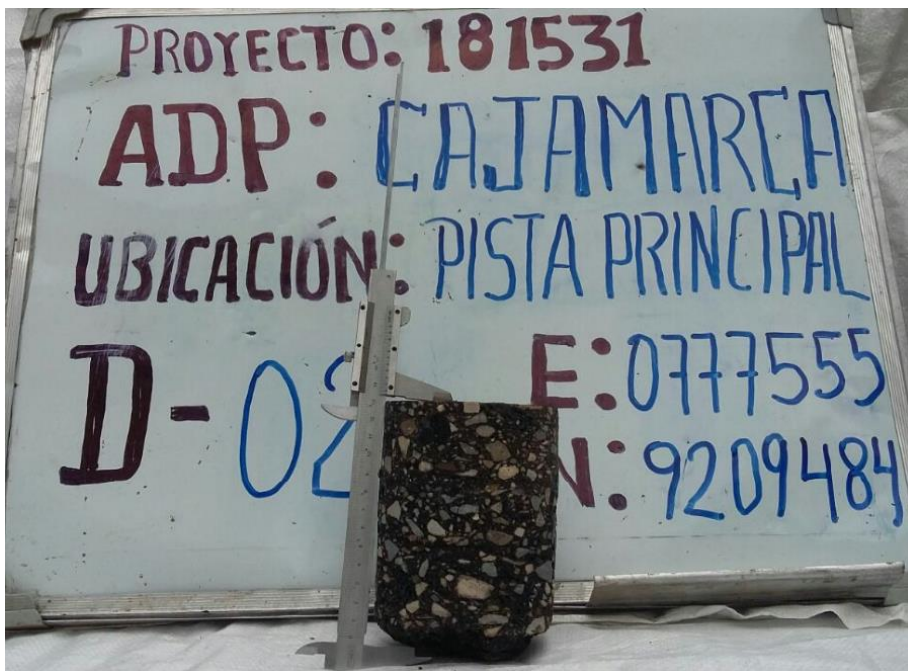 PROYECTO: 181531
ADP: CAJAMARCA
UBICACIÓN: PISTA PRINCIPAL
D-02 E: 0777555
N: 9209484